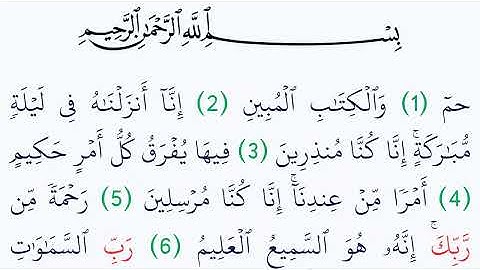 بِسْمِ اللَّهِ الرَّحْمَٰنِ الرَّحِيمِ
حمٓ (1) وَالْكِتَابِ الْمُبِينِ (2) إِنَّآ أَنزَلْنَاهُ فِى لَيْلَةٍ
مُّبَارَكَةٍ ۚ إِنَّا كُنَّا مُنذِرِينَ (3) فِيهَا يُفْرَقُ كُلُّ أَمْرٍ حَكِيمٍ
(4) أَمْرًا مِّنْ عِندِنَآ ۚ إِنَّا كُنَّا مُرْسِلِينَ (5) رَحْمَةً مِّن
رَّبِّكَ ۚ إِنَّهُۥ هُوَ السَّمِيعُ الْعَلِيمُ (6) رَبِّ السَّمَاوَاتِ